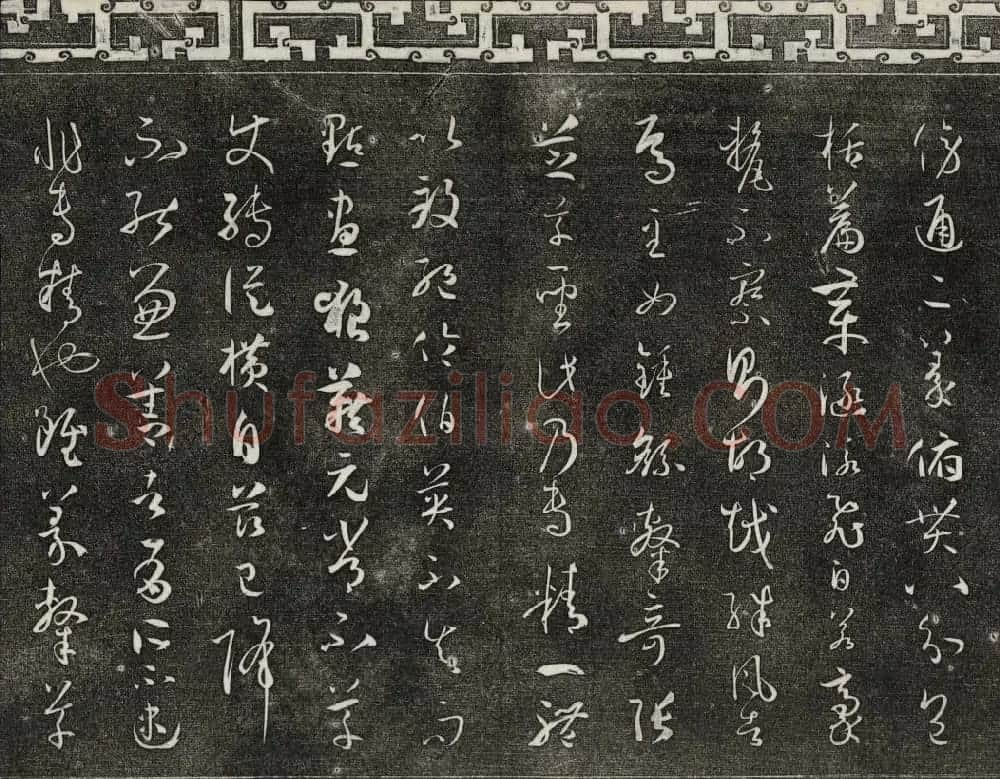 傍通二篆俯貫八分包
括篇章涵泳飛白若豪
氂不察則胡越殊風者
焉至如鍾繇隸奇張
芝草聖此乃專精一體
以致絕倫伯英不真而
點畫狼藉元常不草
使轉縱橫自茲已降
不能兼善者有所不逮
非專精也雖篆隸草
Shufaziliao.COM